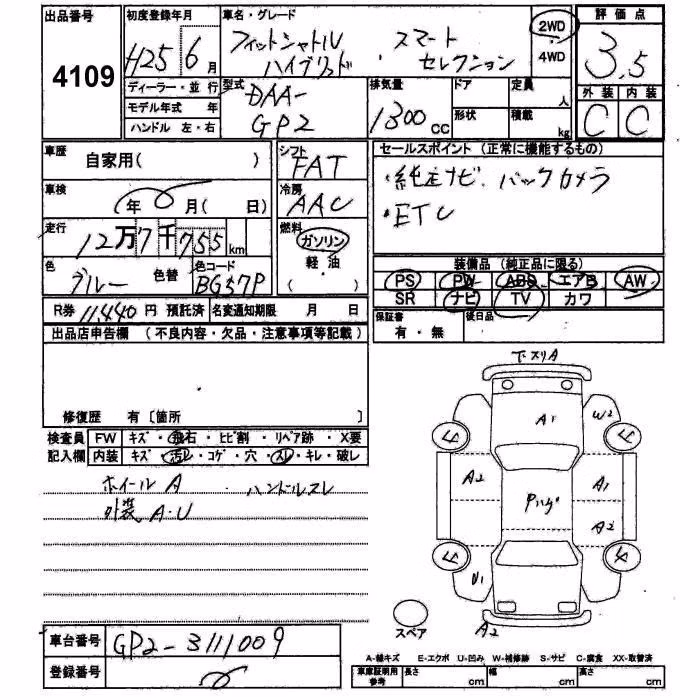 出品番号
4109
初度登録年月
H25 6月
車名・グレード
フィットシャトル スマート
ハイブリッド セレクション
2WD
4WD
評価点
3.5
外装 内装
C C
ディーラー・並行
モデル年式 年
ハンドル 左・右
型式
DAA-
GP2
排気量
1300cc
ドア
形状
定員
人
積載
kg
車歴
自家用( )
車検
(年 月( 日)
走行
12万7千755km
色
ブルー 色替
色コード
BG57P
シフト
FAT
冷房
AAC
燃料
ガソリン
軽・油
( )
セールスポイント (正常に機能するもの)
・純正ナビ. バックカメラ
・ETC
装備品 (純正品に限る)
PS PW ABS エアB AW
SR ナビ TV カワ
保証書
有・無
後日品
R券 11,440円 預託済 名変通知期限 月 日
出品店申告欄 (不良内容・欠品・注意事項等記載)
修復歴 有〔箇所 〕
検査員 FW キズ・飛石・ヒビ割・リペア跡・X要
記入欄 内装 キズ・汚レ・コゲ・穴・スレ・キレ・破レ
ホイールA ハンドルスレ
外装 A・U
下スリA
A1
W2
A2
A1
A2
U1
A2
スペア
車台番号
GP2-3111009
登録番号
A-線キズ E-エクボ U-凹み W-補修跡 S-サビ C-腐食 XX-取替済
車庫証明用
参考
長さ cm 幅 cm 高さ cm